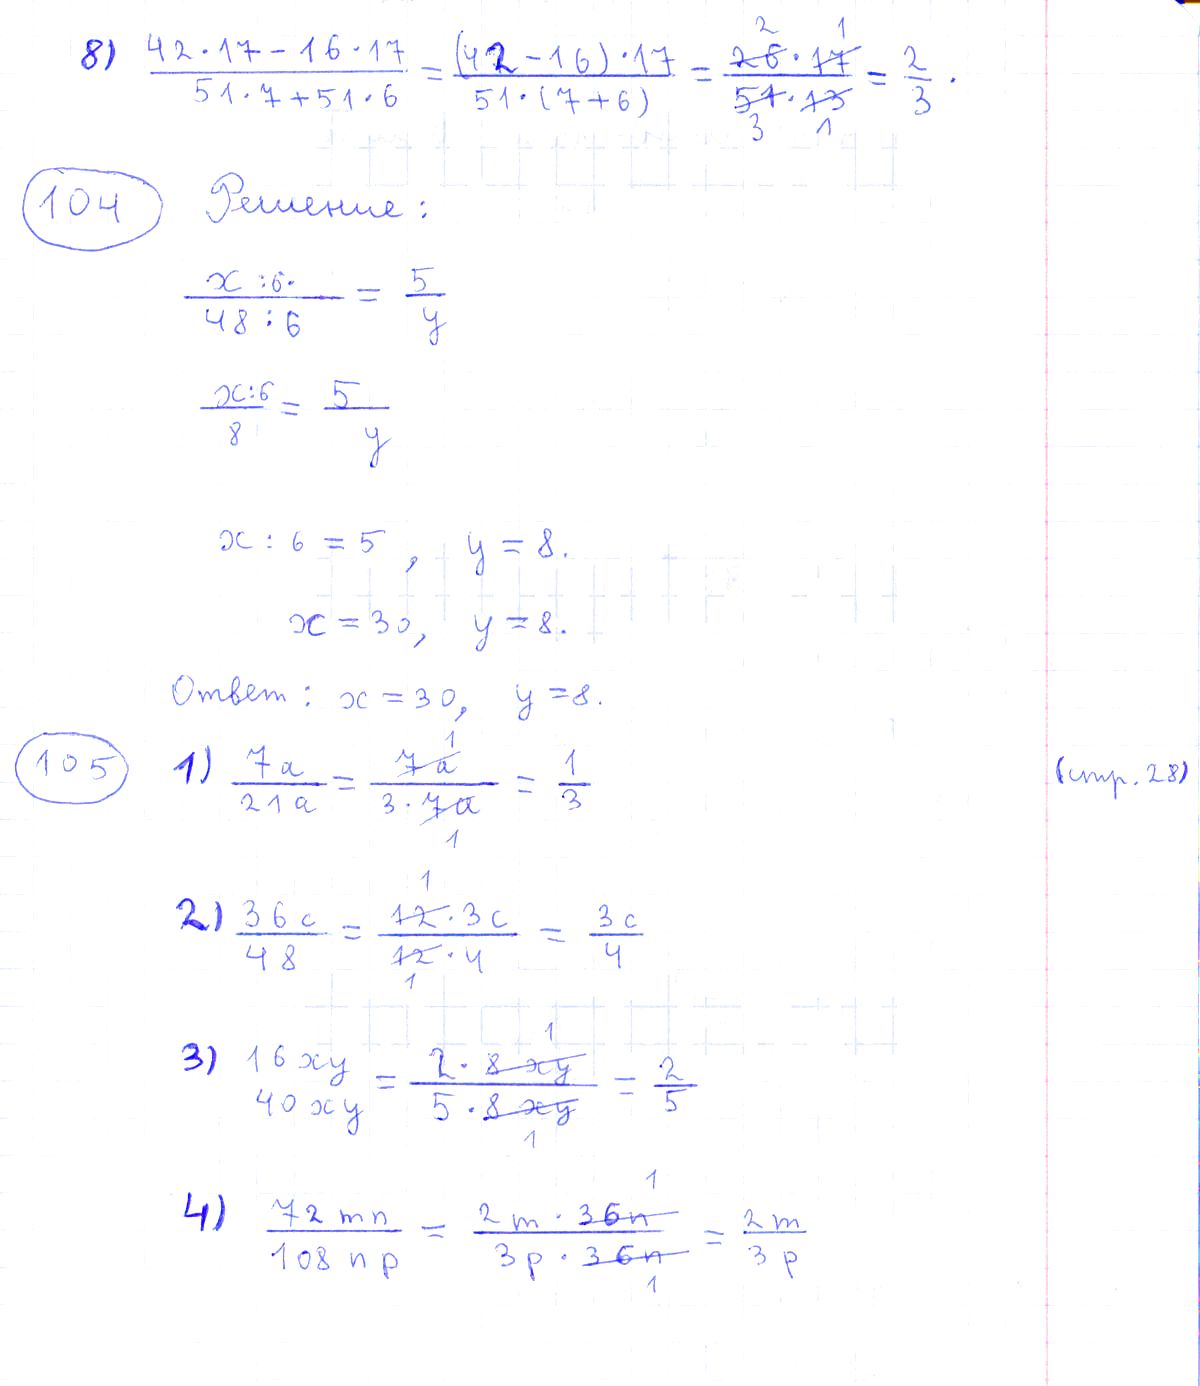 8) (42·17 − 16·17)/(51·7 + 51·6) = ((42 − 16)·17)/(51·(7+6)) = (26·17)/(51·13) = 2/3. (2 1 / 3 1)
104 Решение:
(x:6)/(48:6) = 5/y
(x:6)/8 = 5/y
x : 6 = 5, y = 8.
x = 30, y = 8.
Ответ: x = 30, y = 8.
105 1) 7a/21a = 7a/(3·7a) = 1/3 (1 / 1) (стр. 28)
2) 36c/48 = (12·3c)/(12·4) = 3c/4 (1 / 1)
3) 16xy/40xy = (2·8xy)/(5·8xy) = 2/5 (1 / 1)
4) 72mn/108np = (2m·36n)/(3p·36n) = 2m/3p (1 / 1)